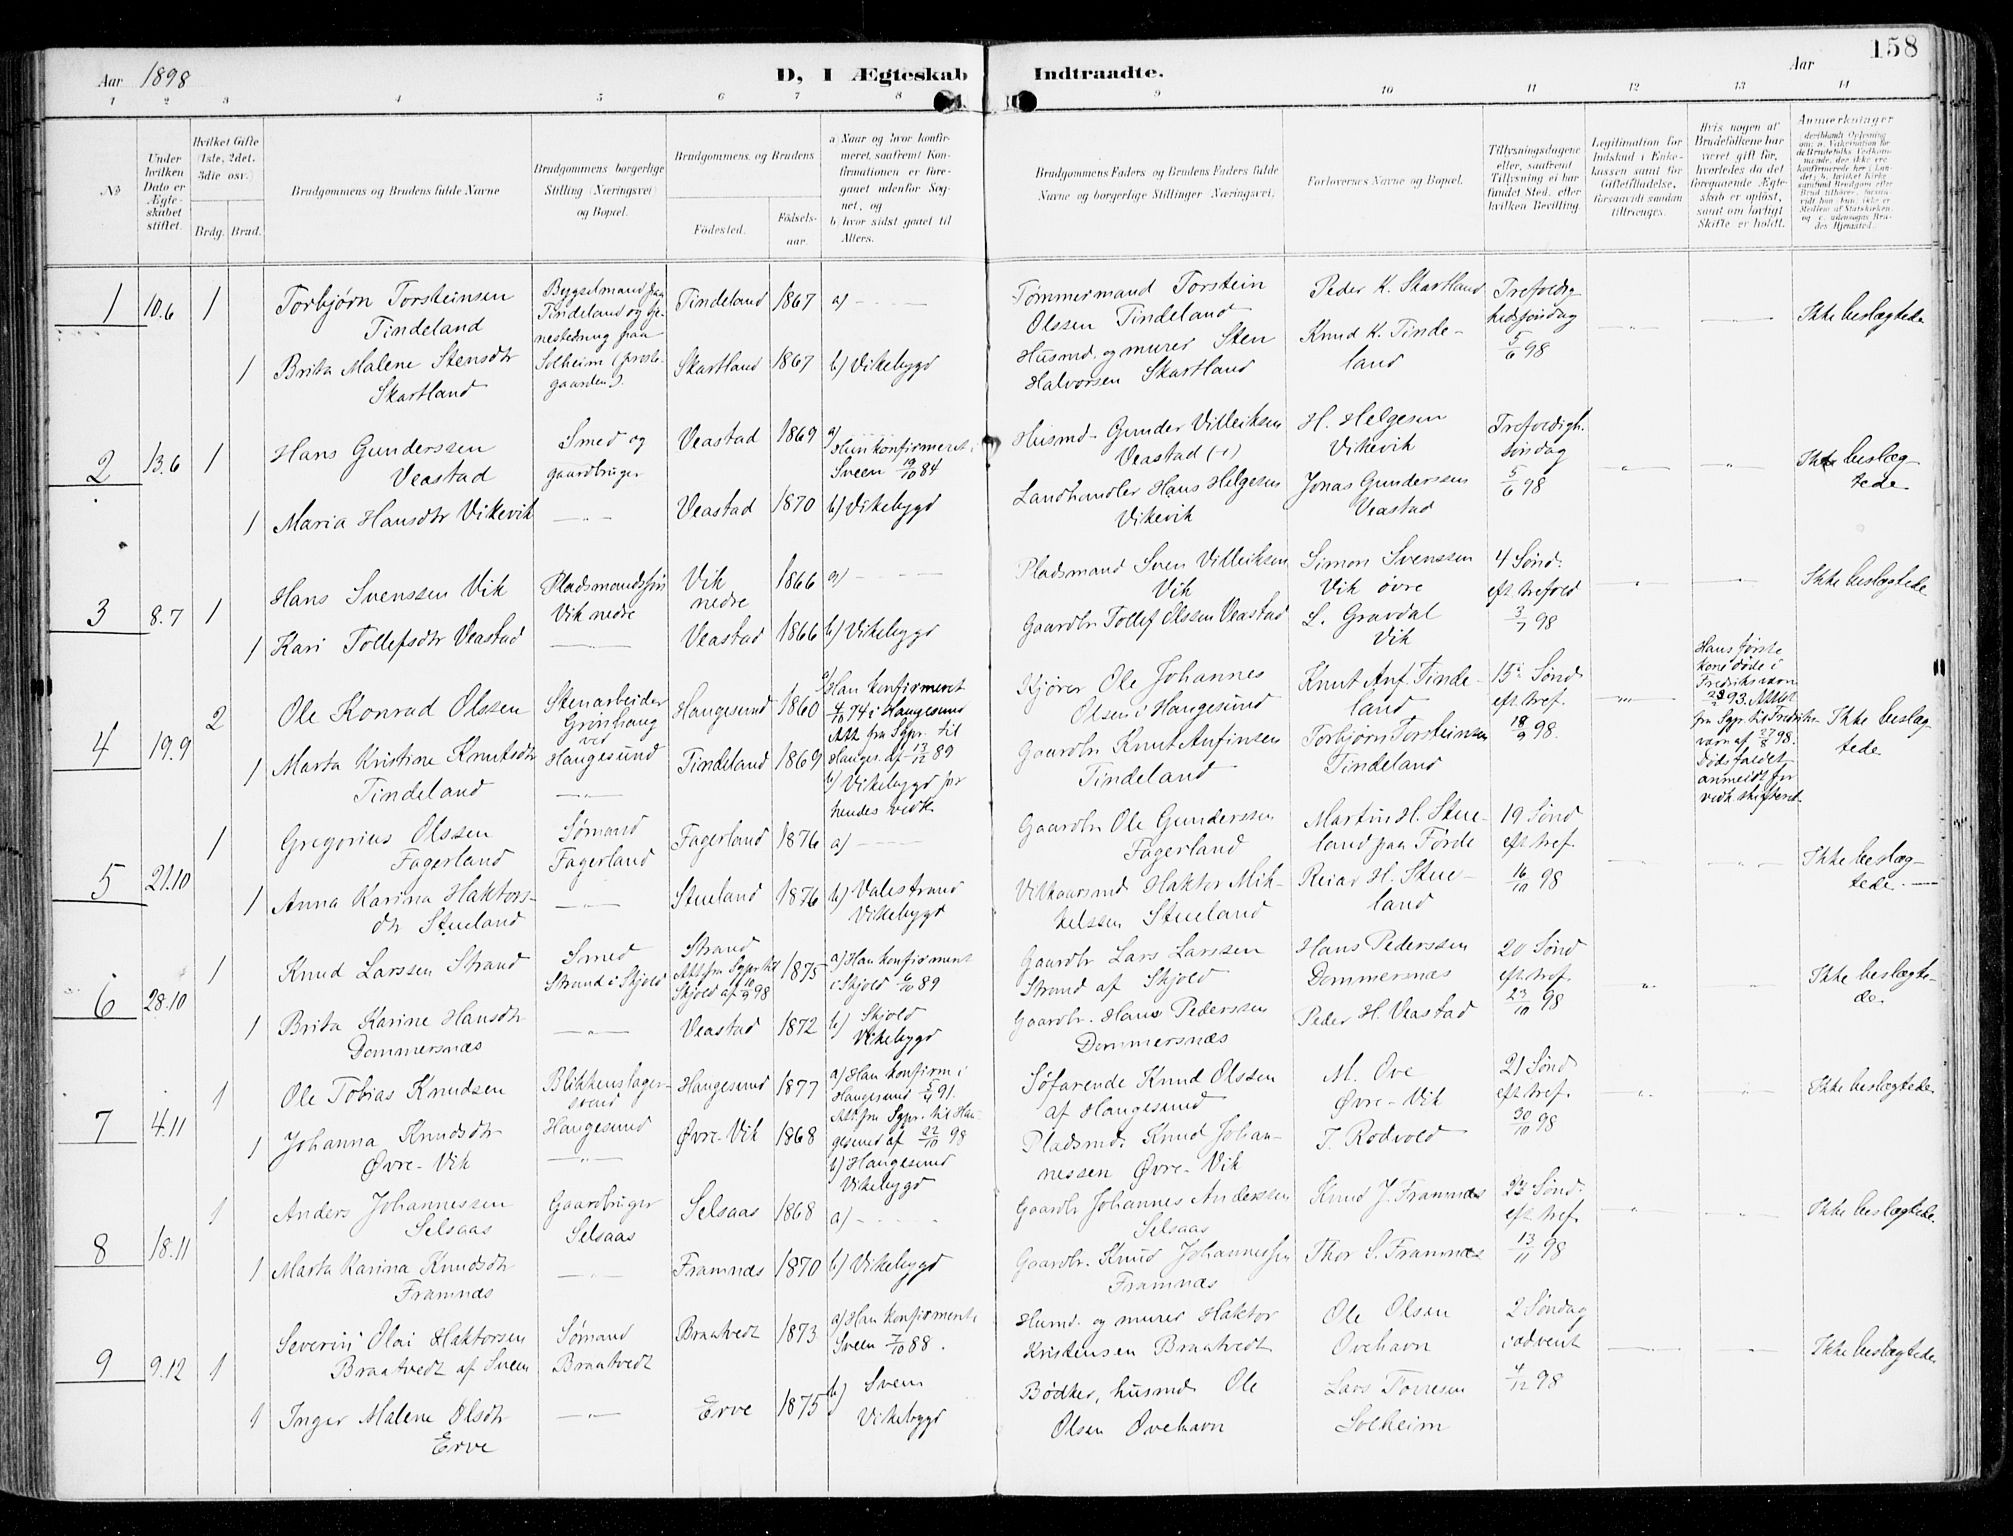 158
Aar 1898
D, I Ægteskab Indtraadte.
Aar
1 2 3 4 5 6 7 8 9 10 11 12 13 14
No
Under hvilken Dato er Ægteskabet stiftet.
Hvilket Gifte (1ste, 2det, 3die osv.)
Brdg. Brud.
Brudgommens og Brudens fulde Navne
Brudgommens borgerlige Stilling (Næringsvei) og Bopæl.
Brudgommens og Brudens
Födested.
Födselsaar.
a) Naar og hvor konfirmeret, saafremt Konfirmationen er foregaaet udenfor Sognet, og
b) hvor sidst gaaet til Alters.
Brudgommens Faders og Brudens Faders fulde Navne og borgerlige Stillinger (Næringsvei.
Forlovernes Navne og Bopæl.
Tillysningsdagene eller, saafremt Tillysning ei har fundet Sted, efter hvilken Bevilling
Legitimation for Indskud i Enkekassen samt for Giftetilladelse, forsaavidt saadan tiltrænges.
Hvis nogen af Brudefolkene har været gift før, hvorledes da det foregaaende Ægteskab er opløst, samt om lovligt Skifte er holdt.
Anmerkninger
1 10.6 1
Torbjørn Torsteinsen
Tindeland
Bygselmand paa
Tindeland og
Tindeland 1867 a) — — —
Tømmermand Torstein
Olssen Tindeland
Peder K. Skartland
Trefoldig
hedssøndag
5/6 98
Ikke beslægtede
1 Brita Malene Stensdtr
Skartland
Solheim (preste-
gaarden).
Skartland 1867 b) Vikebygd
Husmd. og murer Sten
Halvorsen Skartland
Knud K. Tinde-
land
2 13.6 1
Hans Gunderssen
Veastad
Smed og
gaardbruger
Veastad 1869 a)
Hun konfirmeret i
Sveen 19/10 84
Husmd- Gunder Villeiksen
Veastad (+)
H. Helgesen
Vikevik
Trefoldigh.
søndag
5/6 98
Ikke beslæg-
tede
1 Maria Hansdtr Vikevik
— " — Veastad 1870 b) Vikebygd
Landhandler Hans Helgesen
Vikevik
Jonas Gunderssen
Veastad
3 8.7 1
Hans Svenssen Vik
Pladsmandssøn
Vik nedre
Vik
nedre
1866 a) — — —
Pladsmand Sven Villeiksen
Vik
Simon Svenssen
Vik øvre
4 Sønd.
eft trefold
3/7 98
Ikke beslægtede
1 Kari Tollefsdtr Veastad
— " — Veastad 1866 b) Vikebygd
Gaardbr Tollef Olssen Veastad
L. Gravdal
Vik
4 19.9 2
Ole Konrad Olssen
Stenarbeider
Grønhaug
ved
Haugesund
Haugesund 1860
a) Han konfirmeret
4/10 74 i Haugesund
Att. fra Sgpr. til
Hauges. af 13/12 89
Kjører Ole Johannes
Olsen i Haugesund
Knut Anf. Tinde-
land
15de Sønd
eft tref.
18/9 98.
Hans første
kone døde i
Fredriksværn
93. Attest
fra Sgpr. til Fredriks-
værn af 27/8 98.
Dødsfaldet
anmeldt for
vedk. skifteret.
Ikke beslæg-
tede
1 Marta Kristine Knutsdtr
Tindeland
— " — Tindeland 1869
b) Vikebygd for
hendes vedk.
Gaardbr Knut Anfinsen
Tindeland
Torbjørn Torsteinsen
Tindeland
5 21.10 1
Gregorius Olssen
Fagerland
Sømand
Fagerland
Fagerland 1876 a) — — —
Gaardbr Ole Gunderssen
Fagerland
Martin H. Stue-
land paa Førde
19 Sønd
eft tref.
16/10 98
Ikke beslæg-
tede. —
1 Anna Karina Haktors-
dtr Stueland
— " — Stueland 1876 b) Valestrand
Vikebygd
Vilkaarsmd Haktor Mik-
kelssen Stueland
Reiar H. Stue-
land
6 28.10 1
Knud Larssen Strand
Smed
Strand i Skjold
Strand
Att fra Sgpr til
Skjold af 10/9 98
1875
a) Han konfirmeret
i Skjold 6/10 89
Gaardbr Lars Larssen
Strand af Skjold
Hans Pederssen
Dommersnæs
20 Sønd
eft. tref.
23/10 98
Ikke beslægte-
de.
1 Brita Karine Hansdtr
Dommersnæs
— " — Veastad 1872 b) Skjold
Vikebygd
Gaardbr. Hans Pederssen
Dommersnæs
Peder H. Veastad
7 4.11 1
Ole Tobias Knudsen
Blikkenslager-
svend
Haugesund
Haugesund 1877
a) Han konfirm i
Haugesund 5/4 91.
Att fra Sgpr. til Hau-
gesund af 22/10 98
Søfarende Knud Olssen
af Haugesund
M. Ove
Øvre-Vik
21 Sønd
eft tref.
30/10 98
Ikke beslægtede
1 Johanna Knudsdtr
Øvre-Vik
— " — Øvre-Vik 1868
b) Haugesund
Vikebygd
Pladsmd. Knud Johan-
nessen Øvre-Vik
T. Rødvold
8 18.11 1
Anders Johannessen
Selsaas
Gaardbruger
Selsaas
Selsaas 1868 a) — — —
Gaardbr Johannes Anderssen
Selsaas
Knud J. Framnæs
23 Sønd.
eft. tref.
13/11 98
Ikke beslægtede.
1 Marta Karina Knudsdtr
Framnæs
— " — Framnæs 1870 b) Vikebygd
Gaardbr. Knud Johannessen
Framnæs
Thor S. Framnæs
9 9.12 1
Severin Olai Haktorsen
Braatvedt af Sveen
Sømand
Braatvedt
Braatvedt 1873
a) Han konfirment i
Sveen 7/10 88.
Husmd. og murer Haktor
Kristensen Braatvedt
Ole Olsen
Ovehavn
2 Søndag
i advent
4/12 98
Ikke beslægtede
1 Inger Malene Olsdtr
Erve
— " — Erve 1875 b) Sveen
Vikebygd
Bødker, husmd. Ole
Olsen Ovehavn
Lars Torresen
Solheim